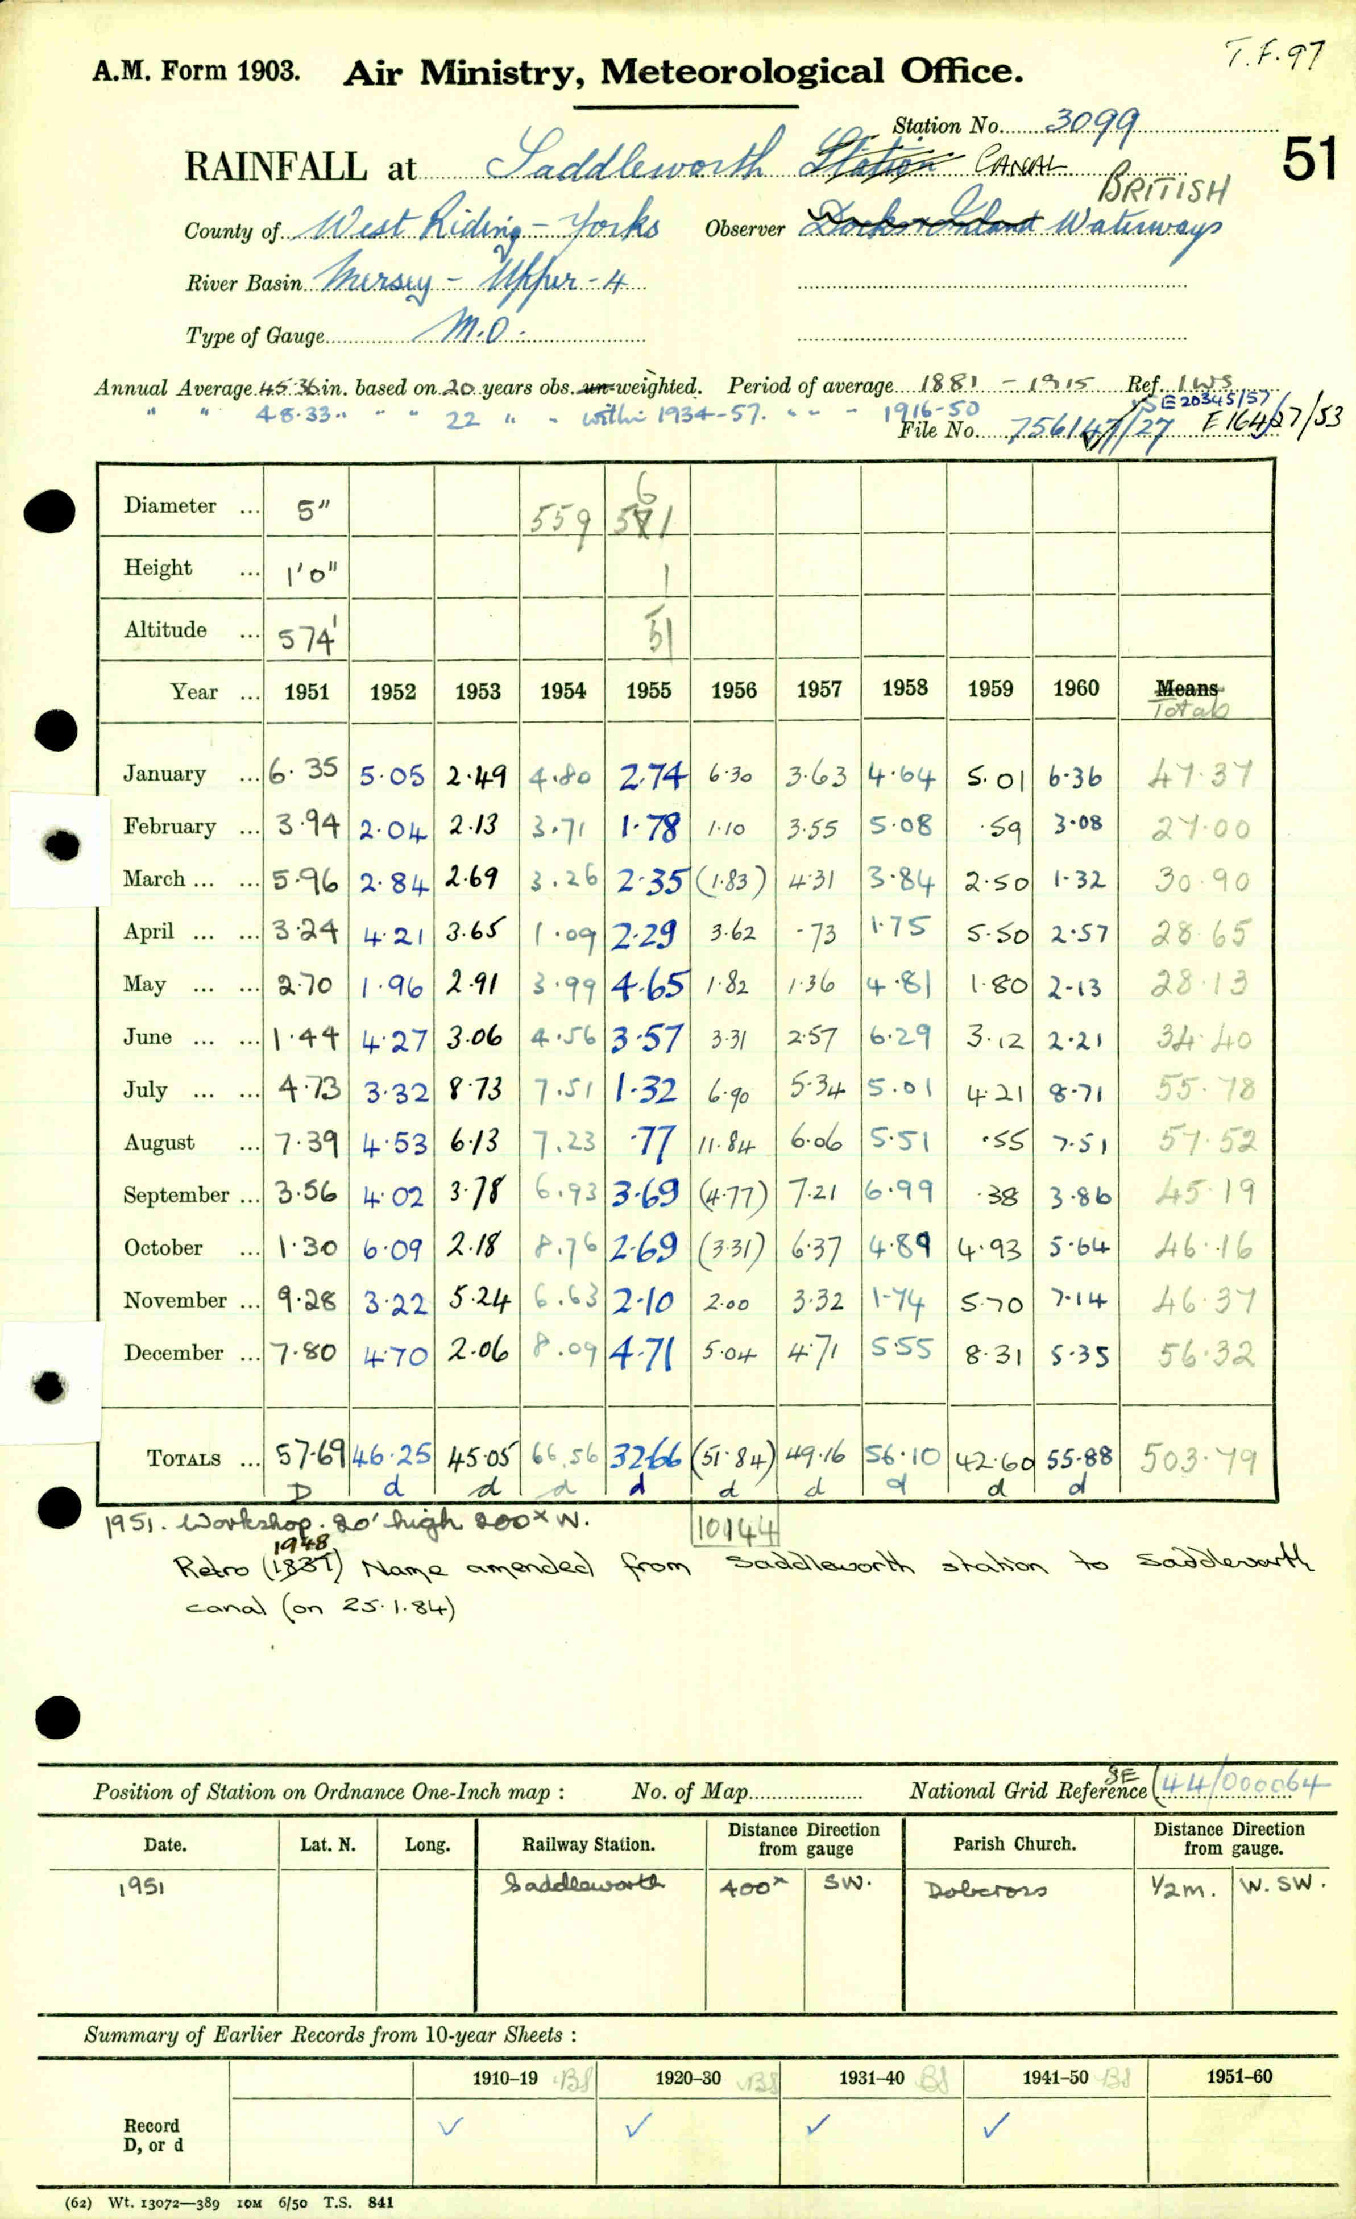 T.F.97
A.M. Form 1903. Air Ministry, Meteorological Office.
Station No. 3099
51
RAINFALL at Saddleworth Station CANAL
BRITISH
County of West Riding - Yorks Observer Docks & Inland Waterways
River Basin Mersey - Upper - 4
Type of Gauge M.O.
Annual Average 45.36 in. based on 20 years obs. un-weighted. Period of average 1881 - 1915 Ref. IWS
" " 48.33 " " " 22 " " - within 1934-57. " " - 1916-50 SE20345/57
File No. 756147/27 E164/27/53
Diameter ... 5" 559 571 6
Height ... 1'0" 1
Altitude ... 574' 51
Year ... 1951 1952 1953 1954 1955 1956 1957 1958 1959 1960 Means
Totals
January ... 6.35 5.05 2.49 4.80 2.74 6.30 3.63 4.64 5.01 6.36 47.37
February ... 3.94 2.04 2.13 3.71 1.78 1.10 3.55 5.08 .59 3.08 27.00
March ... ... 5.96 2.84 2.69 3.26 2.35 (1.83) 4.31 3.84 2.50 1.32 30.90
April ... ... 3.24 4.21 3.65 1.09 2.29 3.62 .73 1.75 5.50 2.57 28.65
May ... ... 2.70 1.96 2.91 3.99 4.65 1.82 1.36 4.81 1.80 2.13 28.13
June ... ... 1.44 4.27 3.06 4.56 3.57 3.31 2.57 6.29 3.12 2.21 34.40
July ... ... 4.73 3.32 8.73 7.51 1.32 6.90 5.34 5.01 4.21 8.71 55.78
August ... 7.39 4.53 6.13 7.23 .77 11.84 6.06 5.51 .55 7.51 57.52
September ... 3.56 4.02 3.78 6.93 3.69 (4.77) 7.21 6.99 .38 3.86 45.19
October ... 1.30 6.09 2.18 8.76 2.69 (3.31) 6.37 4.89 4.93 5.64 46.16
November ... 9.28 3.22 5.24 6.63 2.10 2.00 3.32 1.74 5.70 7.14 46.37
December ... 7.80 4.70 2.06 8.09 4.71 5.04 4.71 5.55 8.31 5.35 56.32
TOTALS ... 57.69 46.25 45.05 66.56 32.66 (51.84) 49.16 56.10 42.60 55.88 503.79
D d d d d d d d d d
1951. Workshop. 20' high 200x W.
10144
1948
Retro (1837) Name amended from Saddleworth station to Saddleworth
canal (on 25.1.84)
Position of Station on Ordnance One-Inch map : No. of Map National Grid Reference SE (44/000064
Date. Lat. N. Long. Railway Station. Distance Direction from gauge Parish Church. Distance Direction from gauge.
1951 Saddleworth 400x SW. Dobcross 1/2 m. W.SW.
Summary of Earlier Records from 10-year Sheets :
1910–19 BS 1920–30 BS 1931–40 BS 1941–50 BS 1951–60
Record
D, or d ✓ ✓ ✓ ✓
(62) Wt. 13072—389 10M 6/50 T.S. 841